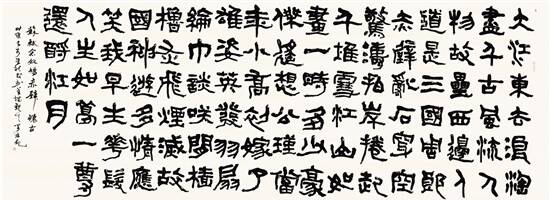 大江東去浪淘
盡千古風流人
物故壘西邊人
道是三國周郎
赤壁亂石穿空
驚濤拍岸捲起
千堆雪江山如
畫一時多少豪
傑遙想公瑾當
年小喬初嫁了
雄姿英發羽扇
綸巾談笑間檣
櫓灰飛煙滅故
國神遊多情應
笑我早生華髮
人生如夢一尊
還酹江月
蘇軾念奴嬌赤壁懷古